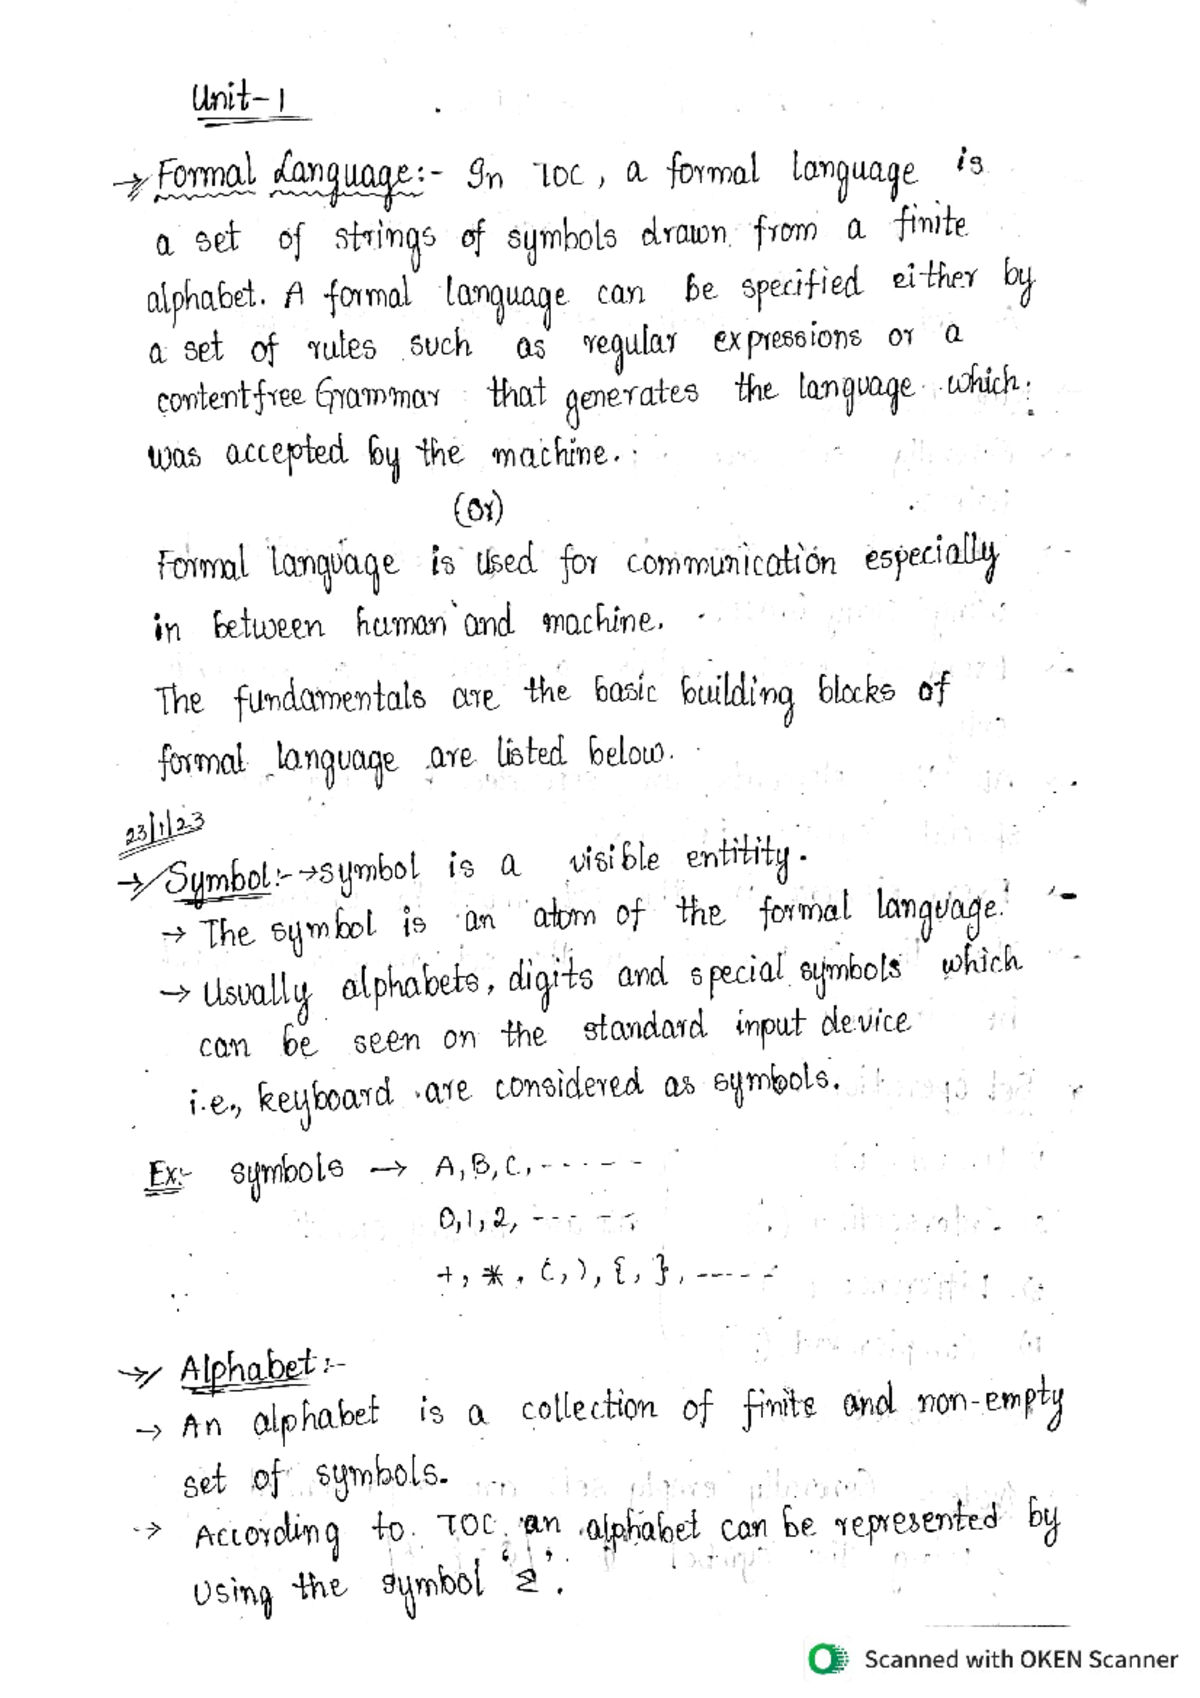 Unit-1
→ Formal Language:- In TOC, a formal language is
a set of strings of symbols drawn from a finite
alphabet. A formal language can be specified either by
a set of rules such as regular expressions or a
contentfree Grammar that generates the language which
was accepted by the machine.
(Or)
Formal language is used for communication especially
in between human and machine.
The fundamentals are the basic building blocks of
formal language are listed below.
23/1/23
→ Symbol:- → symbol is a visible entitity.
→ The symbol is an atom of the formal language.
→ Usually alphabets, digits and special symbols which
can be seen on the standard input device
i.e., keyboard are considered as symbols.
Ex:- symbols → A, B, C, - - - - -
0, 1, 2, - - - - -
+, *, (, ), {, }, - - - - -
→ Alphabet:-
→ An alphabet is a collection of finite and non-empty
set of symbols.
→ According to TOC an alphabet can be represented by
using the symbol 'Σ'.
Scanned with OKEN Scanner